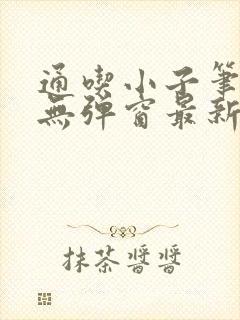 通喫小子筆
無彈窗最新
抹茶醬醬